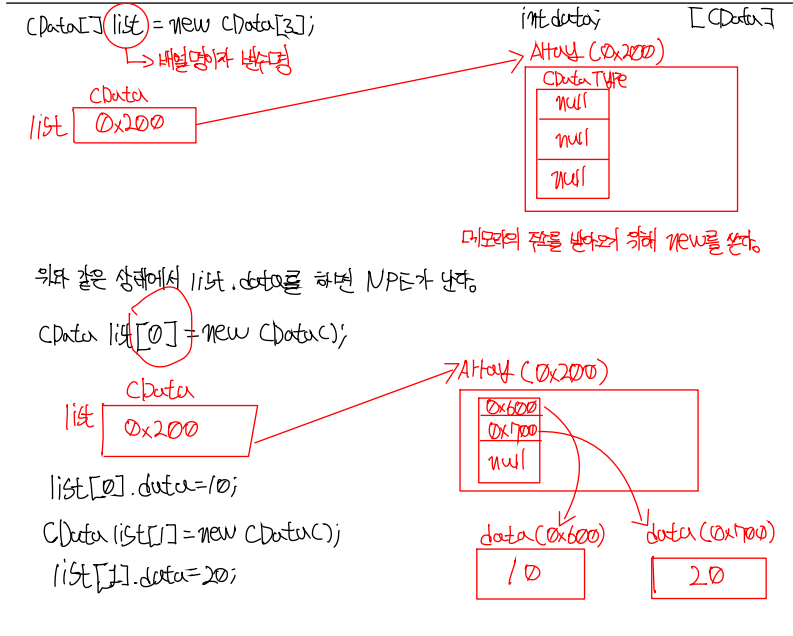 CData[] list = new CData[3];
int data;
[CData]
배열명이자 변수명
Array (0x200)
CData TYPE
CData
list 0x200
null
null
null
메모리의 주소를 받아오기 위해 new를 쓴다.
위와 같은 상태에서 list.data를 하면 NPE가 난다.
CData list[0] = new CData();
Array (0x200)
CData
list 0x200
0x600
0x700
null
list[0].data=10;
CData list[1] = new CData();
list[1].data=20;
data(0x600)
data(0x700)
10
20